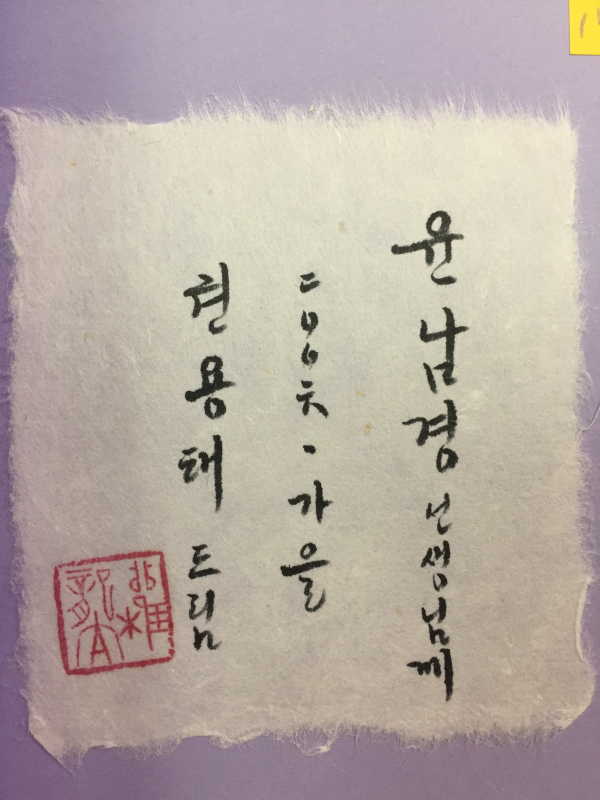 윤남경 선생님께
二〇〇六·가을
권용태 드림